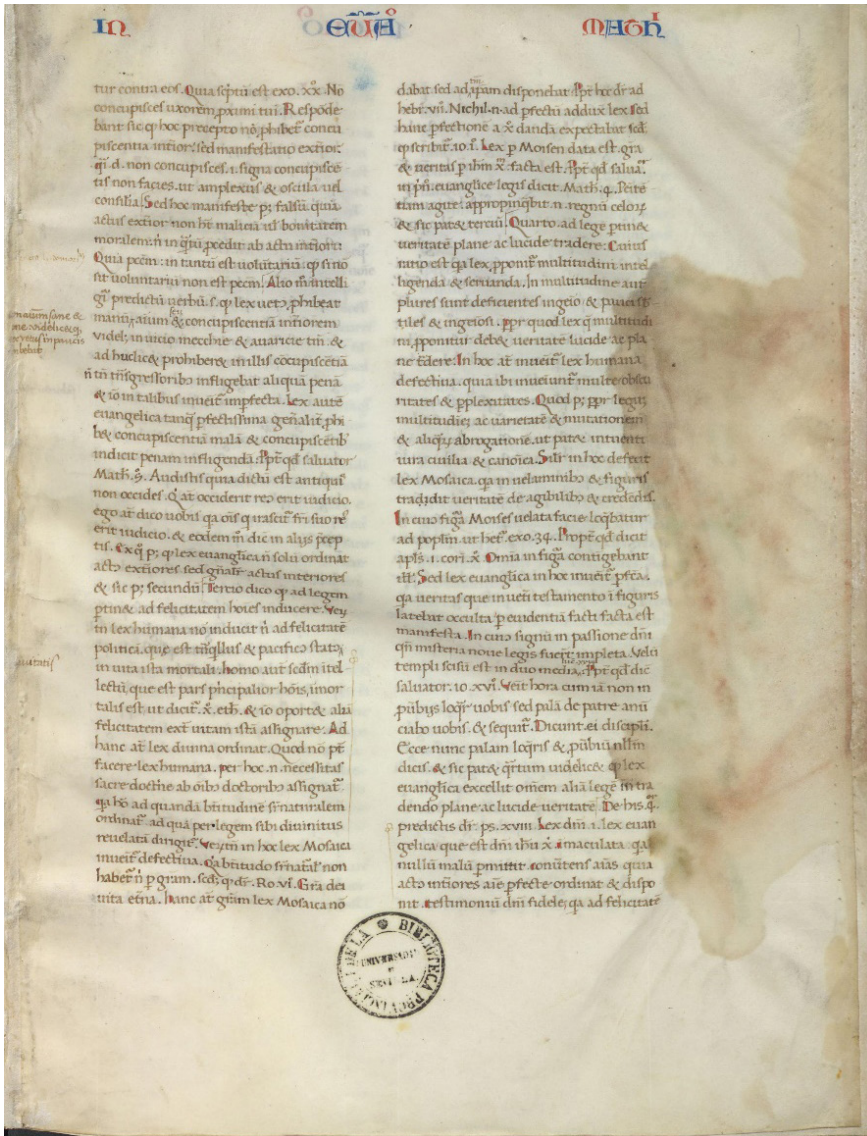 IN EUA MATH
tur contra eos. Quia scptu est exo. xx. No
concupisces uxorem, pximi tui. Respode
bant sic q hoc precepto no phibet concu
piscentia intior. sed manifestatio extior.
q. d. non concupisces. i. signa concupisce
tie non facies. ut amplexus & oscula uel
consilia. Sed hoc manifeste p; falsu. quia
actus extior non ht malicia ul bonitatem
moralem: n in qtu pcedit ab actu intiori.
Quia pccm: in tantu est uoluntariu. q si no
sit uoluntariu non est pccm. Alio m intelli
git predictu uerbu. s. q lex uet9 phibeat
manu; aium & concupiscentia intiorem
videl; in uicio mecchie & auaricie tm. &
ad huc licet prohiberet in illis cocupiscetia
n tn tnsgressorib9 infligebat aliqua pena
& io in talibus inueit imperfecta. Lex aute
euangelica tanq pfectissima gnalit phi
bet concupiscentia mala & concupiscetib
indicit penam infligenda. Ppt qd saluator
Math. 5. Audistis quia dictu est antiquis
non occides. Q at occiderit re9 erit iudicio.
ego at dico uobis qa ois q irascit fri suo re9
erit iudicio. & eodem m dic in alijs pcep
tis. Ex q p; q lex euanglica n solu ordinat
act9 extiores sed gnalr actus interiores
& sic p; secundu. Tercio dico q ad legem
ptinet ad felicitatem hoies inducere. Vey
tn lex humana no inducit n ad felicitate
politica. que est tnqllus & pacific9 stat9
in uita ista mortali. homo aut scdm itel
lectu, que est pars pncipalior hois, imor
talis est ut dicit. x. eth. & io oportet alia
felicitatem ext uitam ista assignare. Ad
hanc at lex diuina ordinat. Quod no pt
facere lex humana. per hoc. n. necessitas
sacre doctne ab oib9 doctorib9 assignat
qa ho ad quanda btitudine srnaturalem
ordinat. ad qua per legem sibi diuinitus
reuelata dirigit. Veytn in hoc lex Mosaica
inueit defectiua. Qa btitudo srnatal non
habet n p gram. scdm q dr. Ro. vi. Gra dei
uita etna. hanc at gram lex Mosaica no
dabat sed ad ipam disponebat. Ppt hoc dr ad
hebr. vii. Nichil. n. ad pfectu addux lex. Sed
hanc pfectione a x danda expectabat scd
q scribit. io. i. Lex p Moisen data est. gra
& ueritas p ihm x facta est. Ppt qd salua
in pn. euanglice legis dicit. Math. 4. Peite
tiam agite: appropinqbit. n. regnu celoy
& sic patet terciu. Quarto ad lege ptinet
ueritate plane ac lucide tradere: Cuius
ratio est qa lex pponit multitudini intel
ligenda & seruanda. In multitudine aut
plures sunt deficientes ingeio & pauci sb
tiles & ingeiosi. ppr quod lex q multitudi
ni pponitur debet ueritate lucide ac pla
ne tdere. In hoc at inueit lex humana
defectiua. quia ibi inueiunt multe obscu
ritates & pplexitates. Quod p; ppr legu
multitudie; ac uarietate & mutationem
& aliqu; abrogatione. ut patet intuenti
iura ciuilia & canoica. Silr in hoc defecit
lex Mosaica. qa in uelaminib9 & figuris
tradidit ueritate de agibilib9 & credendis.
In cui9 figa Moises uelata facie loqbatur
ad poplm. ut het. exo. 34. Propt qd dicit
apls. i. cori. x. Omia in figa contigebant
ill. Sed lex euanglica in hoc inueit pfca.
qa ueritas que in ueti testamento i figuris
latebat occulta p euidentia facti facta est
manifesta. In cui9 signu in passione dni
qn misteria noue legis fuert impleta. Velu
templi scisu est in duo media. Ppt qd dic
saluator. io. xvi. Veit hora cum ia non in
pubijs loqr uobis sed pala de patre anu
ciabo uobis. & sequit. Dicunt. ei discipli.
Ecce nunc palam loqris & pubiu nllm
dicis. & sic patet qrtum uidelicet q lex
euanglica excellit omem alia lege in tra
dendo plane ac lucide ueritate. De his. 4
predictis dr. ps. xviii. Lex dni. i. lex euan
gelica que est dni ihu x imaculata. qa
nullu malu pmittit. conutens aias quia
act9 intiores aie pfecte ordinat & dispo
nit. testimoniu dni fidele; qa ad felicitate
BIBLIOTECA PROVINCIAL DE LA
UNIVERSIDAD
SEVILLA